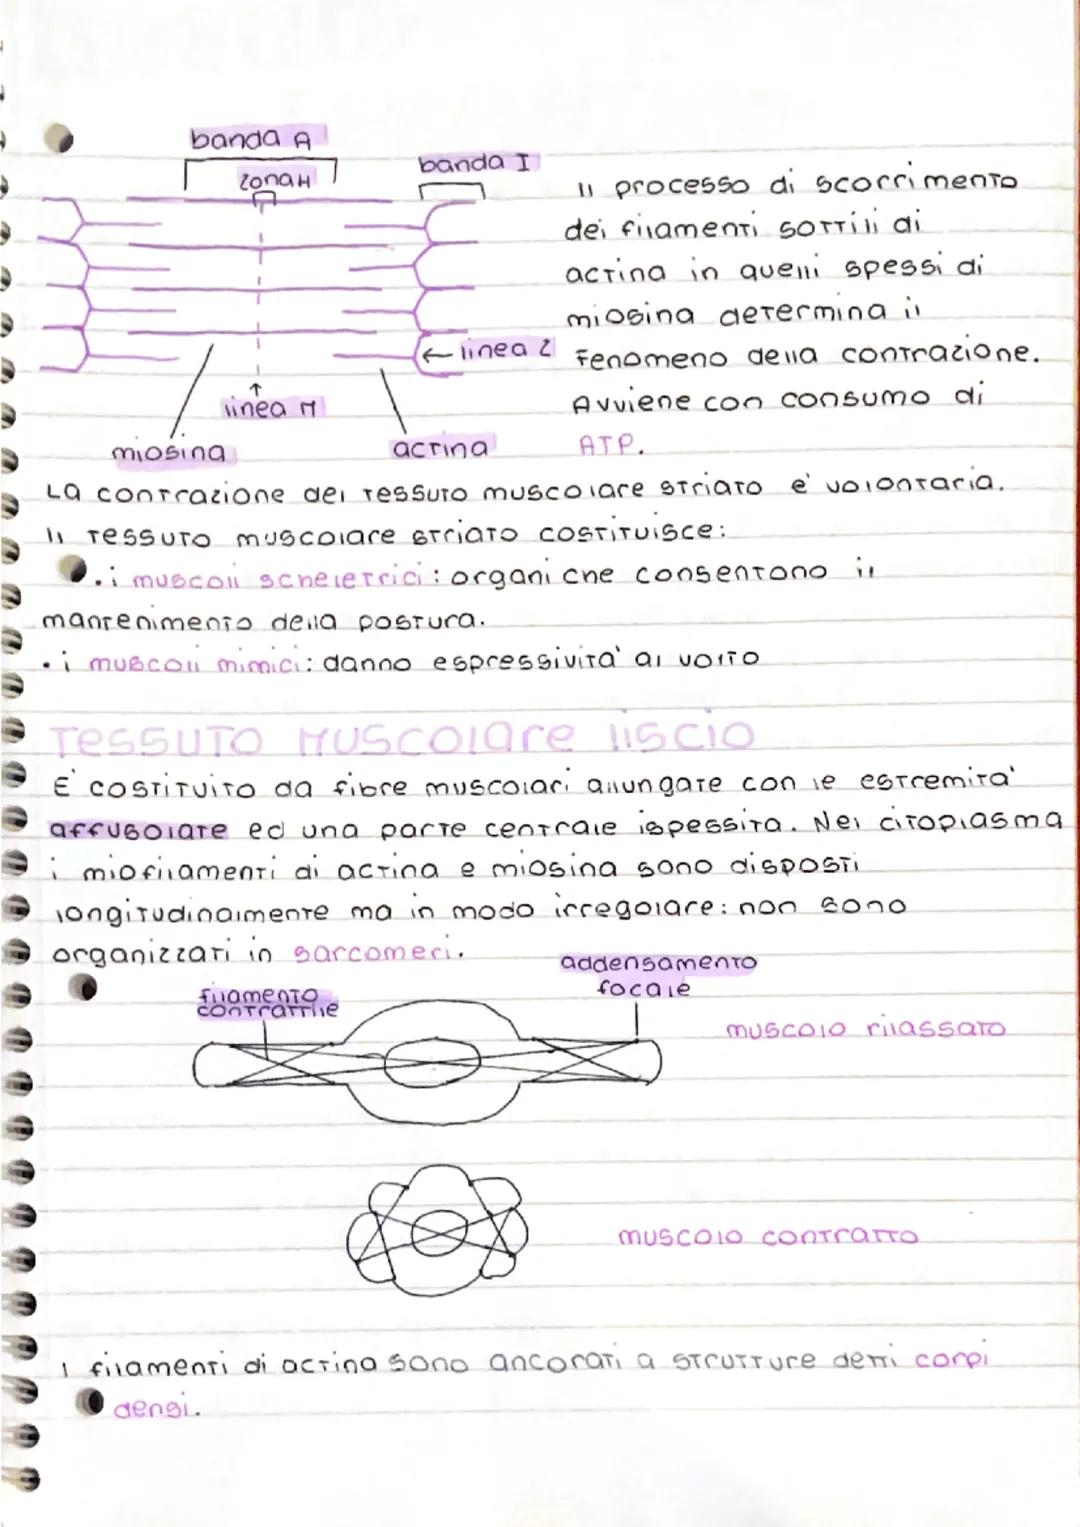 banda A
banda I
zona H
Il processo di scorrimento
dei filamenti sottili di
actina in quelli spessi di
miosina determina il
← linea Z
fenomeno della contrazione.
↑
linea M
Avviene con consumo di
miosina
actina
ATP.
La contrazione del tessuto muscolare striato e' volontaria.
Il tessuto muscolare striato costituisce:
• i muscoli scheletrici: organi che consentono il
mantenimento della postura.
• i muscoli mimici: danno espressivita' al volto
Tessuto Muscolare liscio
E' costituito da fibre muscolari allungate con le estremita'
affusolate ed una parte centrale ispessita. Nel citoplasma
i miofilamenti di actina e miosina sono disposti
longitudinalmente ma in modo irregolare: non sono
organizzati in sarcomeri.
addensamento
focale
filamento
contrattile
muscolo rilassato
muscolo contratto
I filamenti di actina sono ancorati a strutture detti corpi
densi.